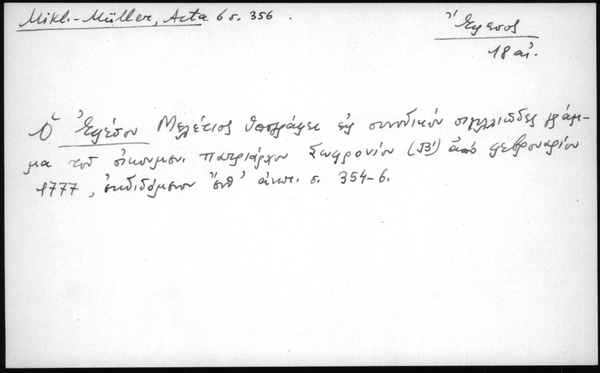 Mikl.-Müller, Acta 6 σ. 356.
Ἔφεσος
18 αἰ.
Ὁ Ἐφέσου Μελέτιος ὑπογράφει εἰς συνοδικὸν σιγιλλιῶδες γράμ-
μα τοῦ οἰκουμεν. πατριάρχου Σωφρονίου (Β!) ἀπὸ φεβρουαρίου
1777, ἐκδιδόμενον ἀνωτ. σ. 354-6.